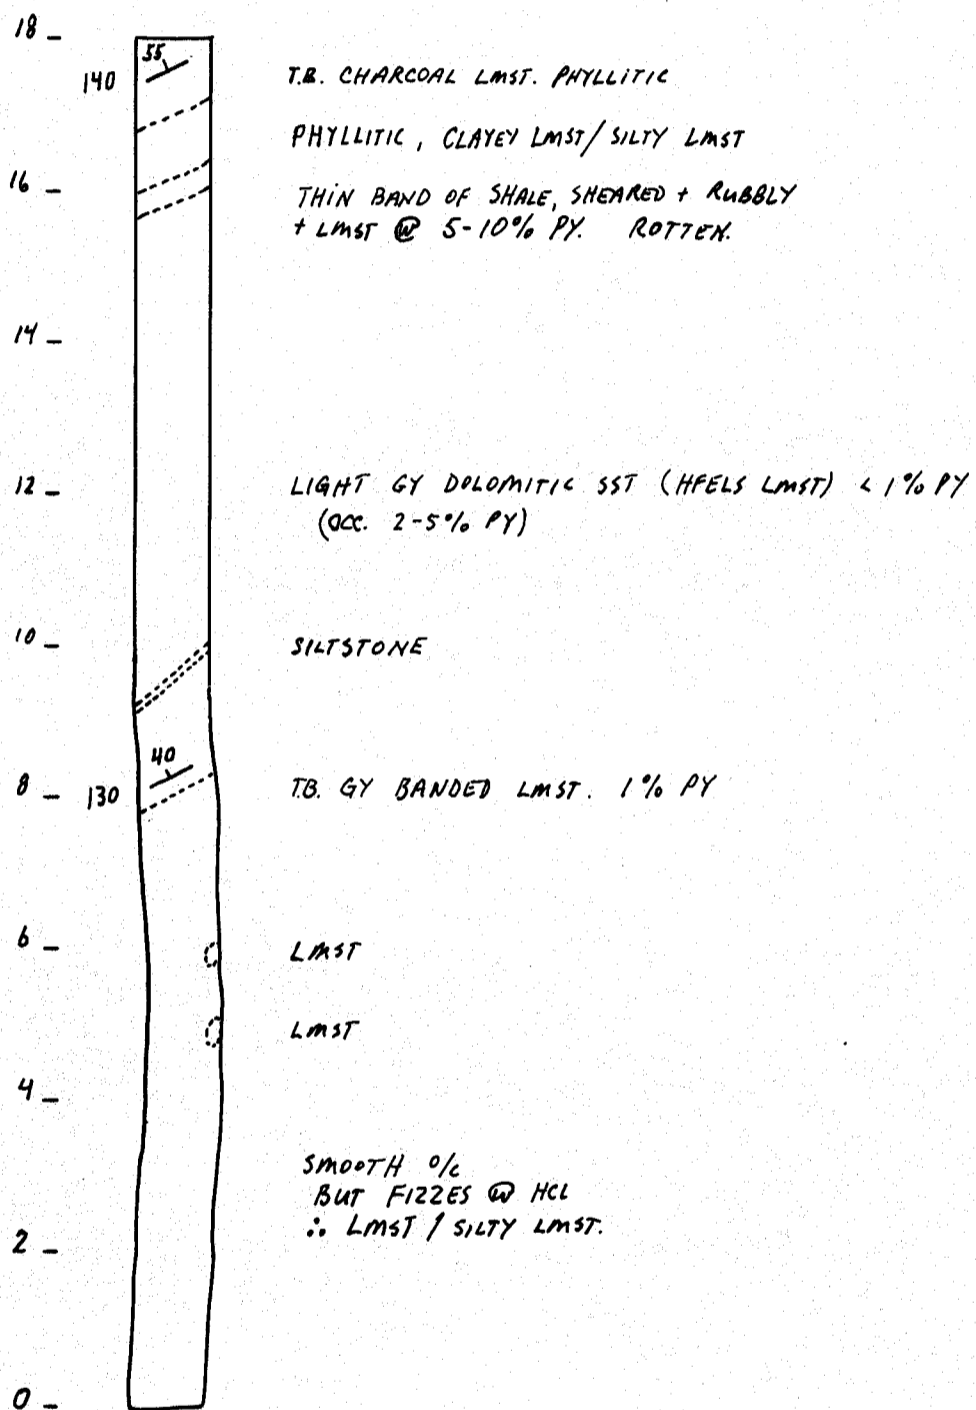 18
55
140
T.B. CHARCOAL LMST. PHYLLITIC
PHYLLITIC, CLAYEY LMST/SILTY LMST
16
THIN BAND OF SHALE, SHEARED + RUBBLY
+ LMST @ 5-10% PY. ROTTEN.
14
12
LIGHT GY DOLOMITIC SST (HFELS LMST) < 1% PY
(OCC. 2-5% PY)
10
SILTSTONE
40
8
130
T.B. GY BANDED LMST. 1% PY
6
LMST
LMST
4
SMOOTH O/C
BUT FIZZES ⓦ HCL
∴ LMST / SILTY LMST.
2
0